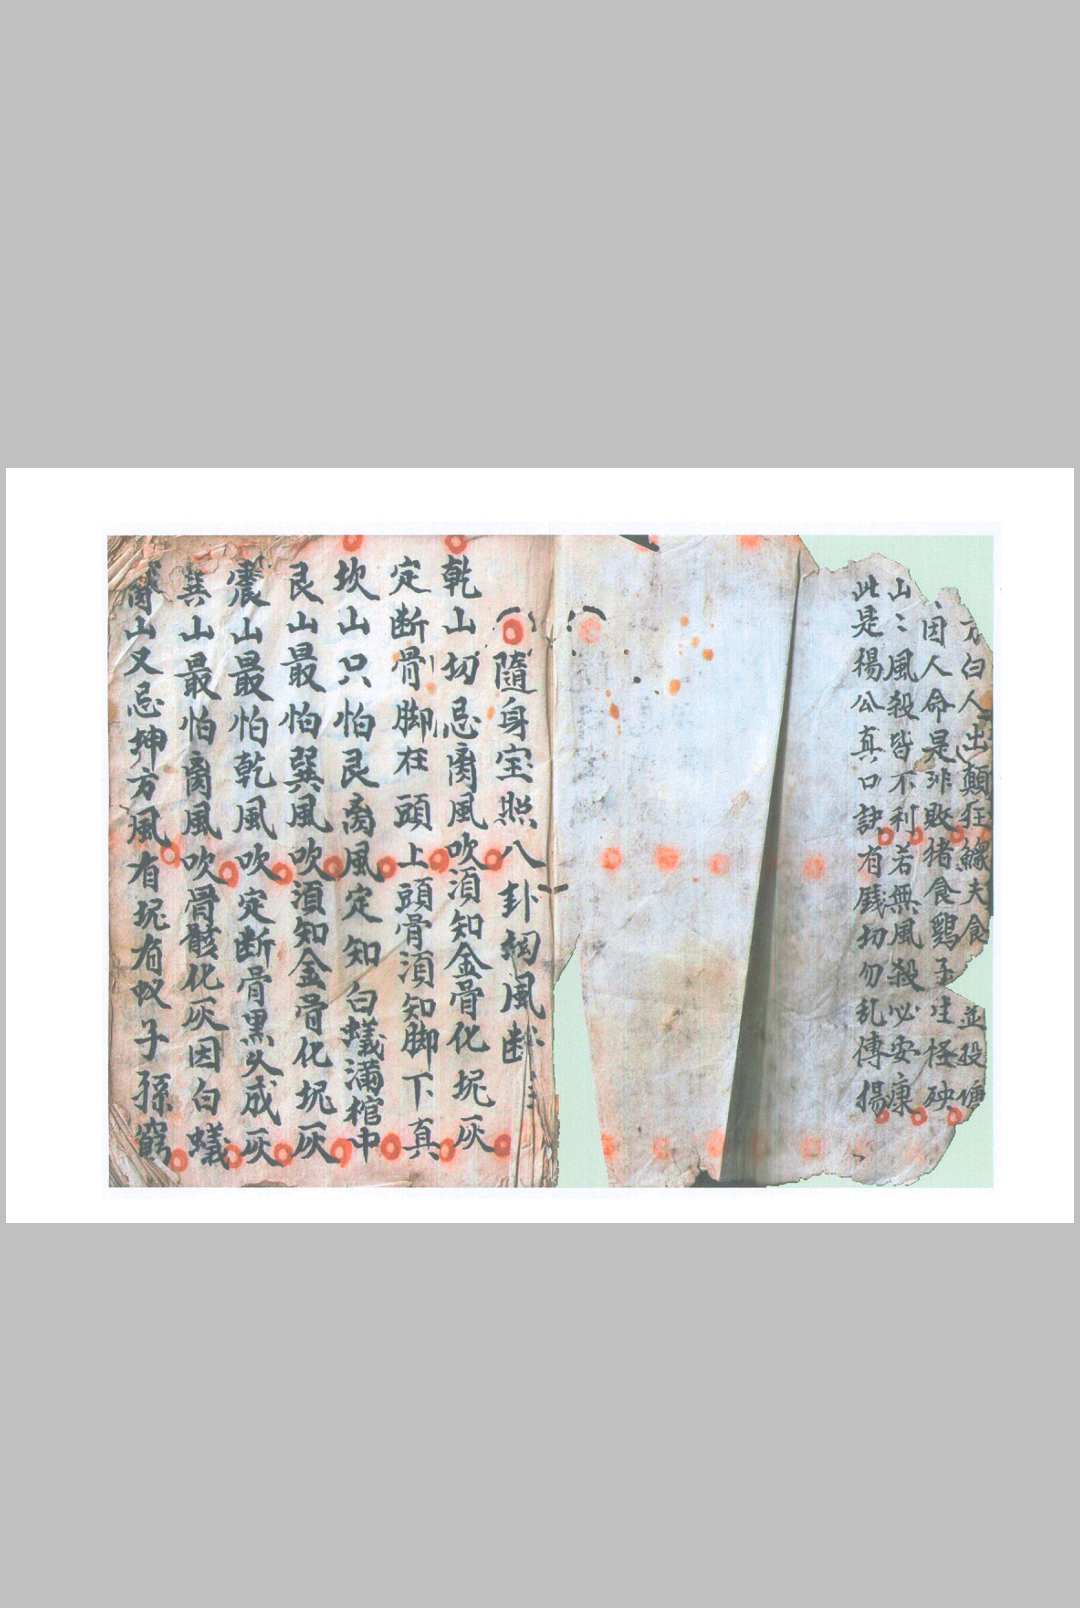 方白人出顛狂緣夫食並投
因人命是非敗猪食鷄子生怪殃
山〻風殺皆不利若無風殺必安康
此是楊公真口訣有錢切勿乱傳揚
隨身宝照八卦綱風断
乾山切忌离風吹湏知金骨化坭灰
定断骨脚在頭上頭骨湏知脚下真
坎山只怕艮离風定知白蟻滿棺中
艮山最怕巽風吹湏知金骨化坭灰
震山最怕乾風吹定断骨黑久成灰
巽山最怕离風吹骨骸化灰因白蟻
离山又忌坤方風有坭有蚁子孫窮